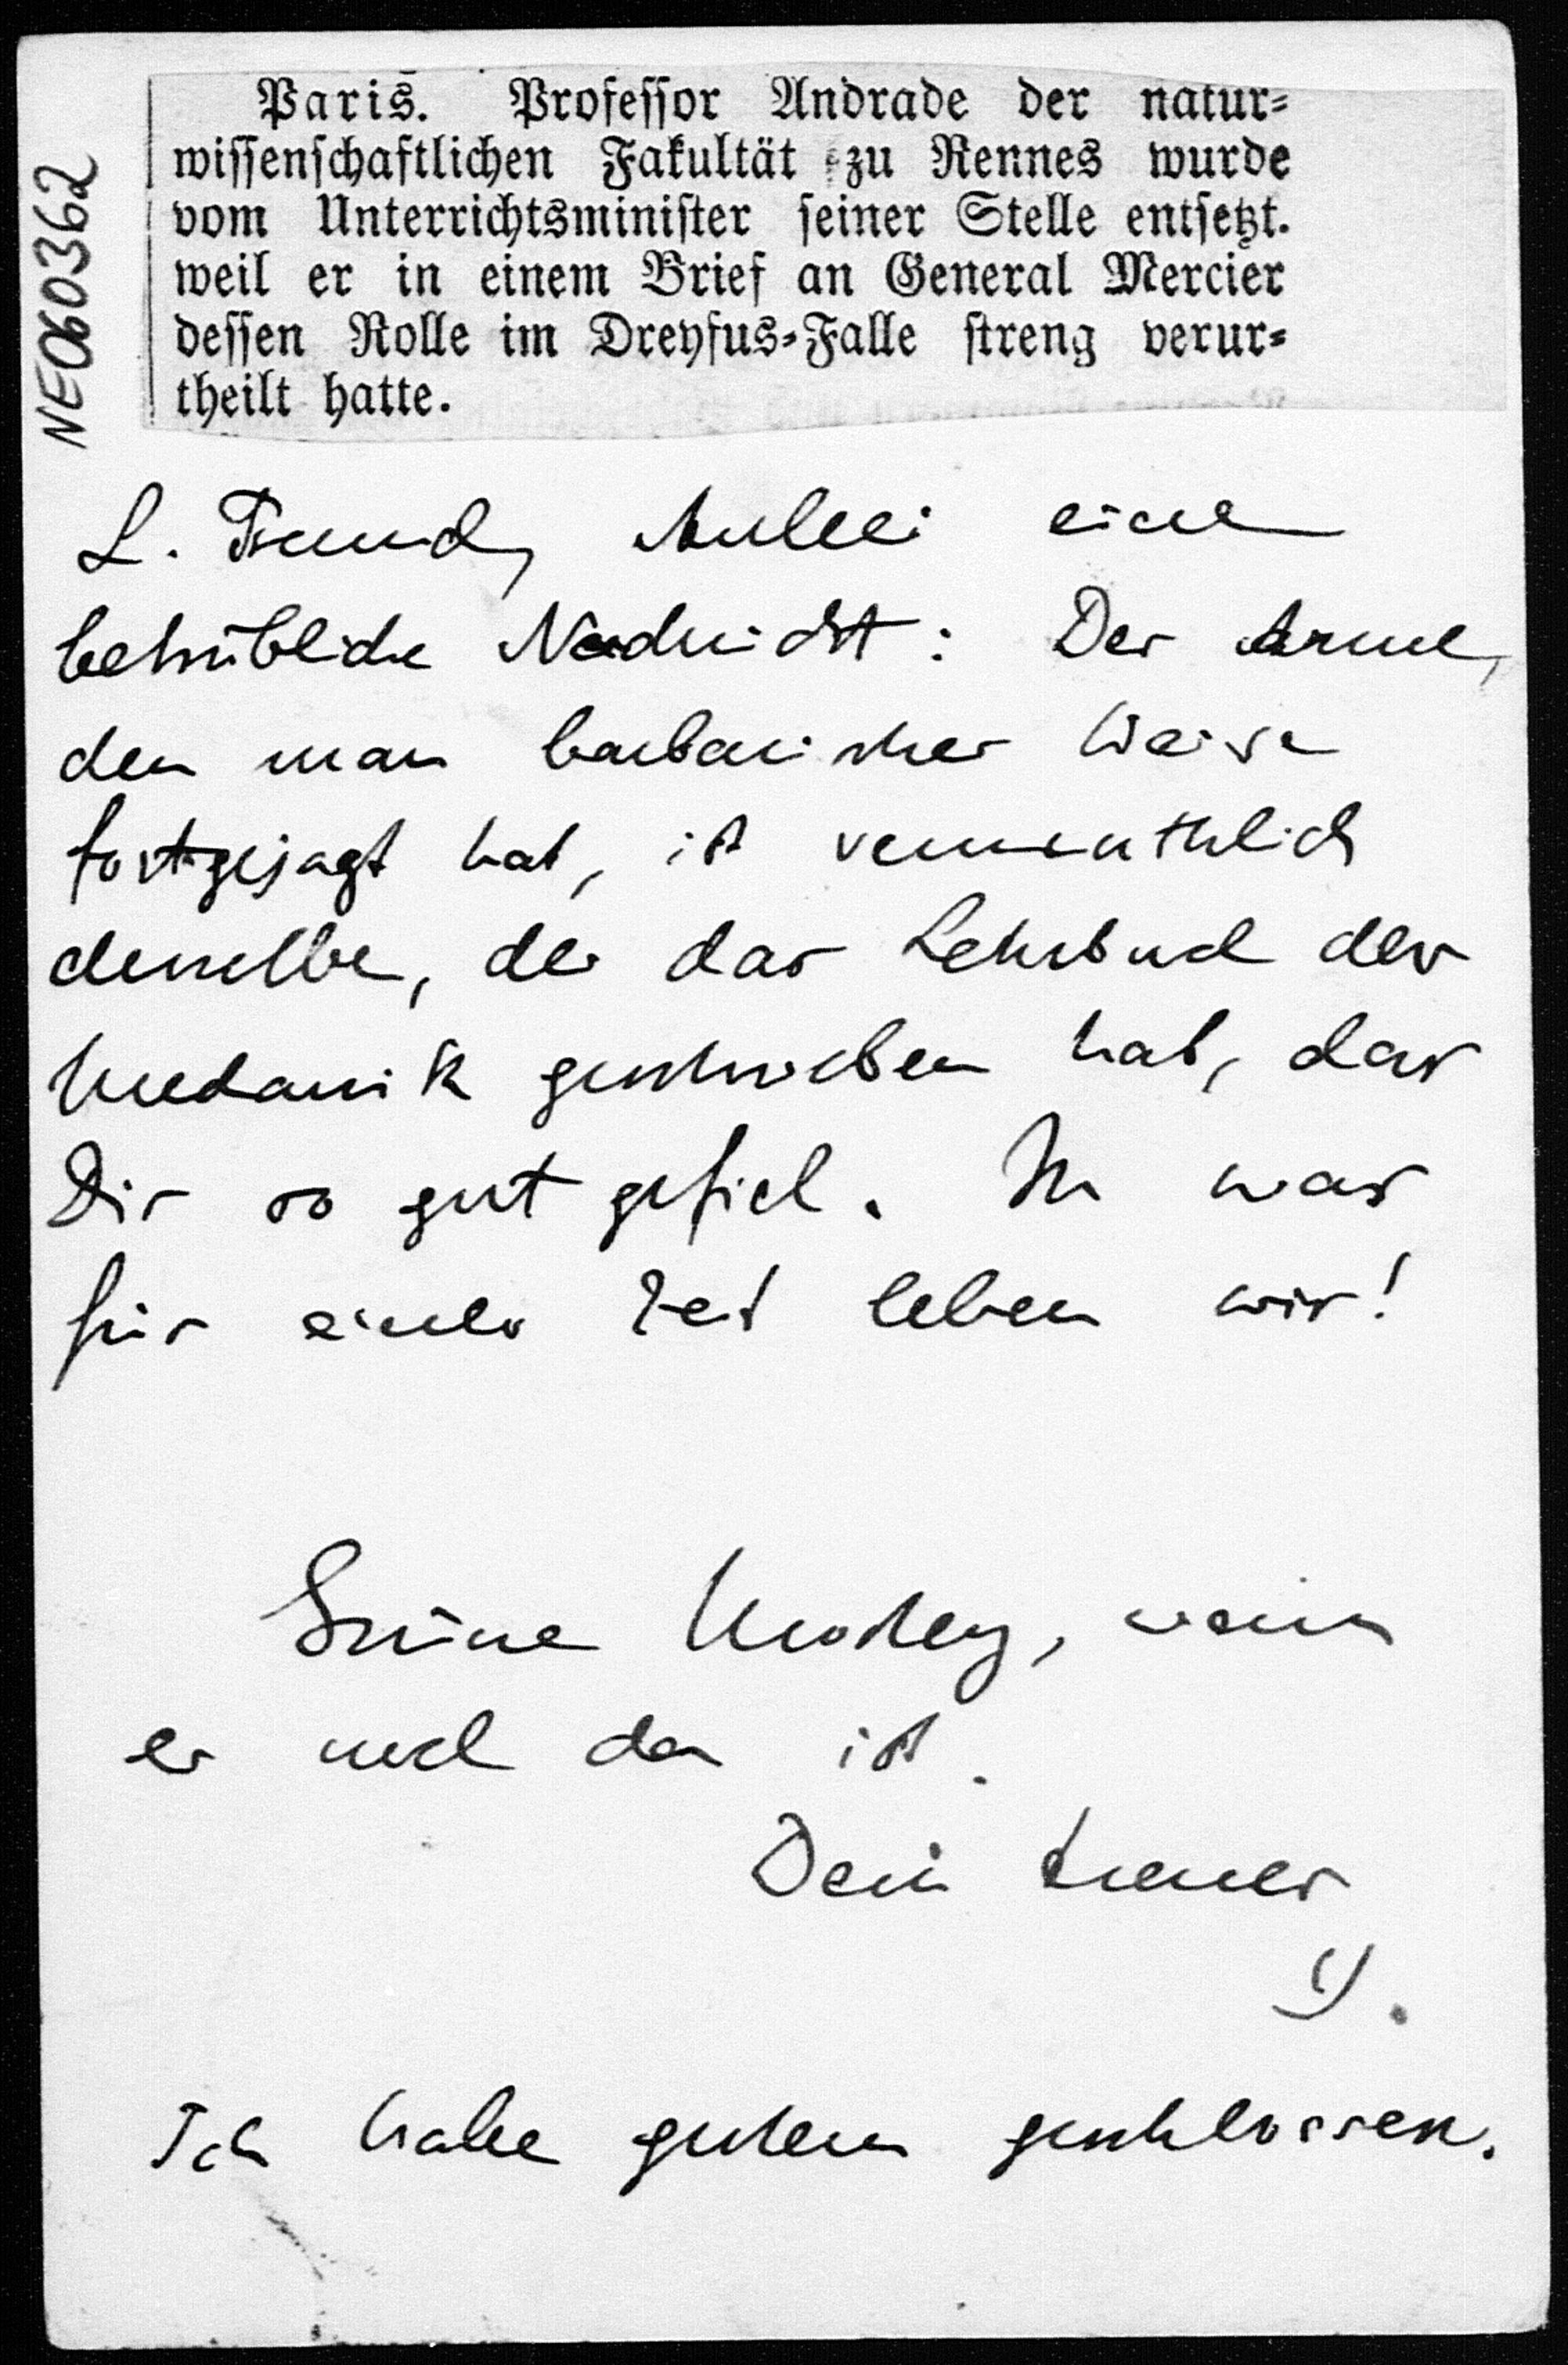 NE060362
Paris. Professor Andrade der natur=
wissenschaftlichen Fakultät zu Rennes wurde
vom Unterrichtsminister seiner Stelle entsetzt.
weil er in einem Brief an General Mercier
dessen Rolle im Dreyfus=Falle streng verur=
theilt hatte.
L. Freund, Anbei eine
betrübliche Nachricht: Der Arme,
den man barbarischer Weise
fortgejagt hat, ist vermuthlich
derselbe, der das Lehrbuch der
Mechanik geschrieben hat, das
Dir so gut gefiel. In was
für einer Zeit leben wir!
Grüsse, wenn
er noch da ist.
Dein treuer
Ich habe gestern geschlossen.